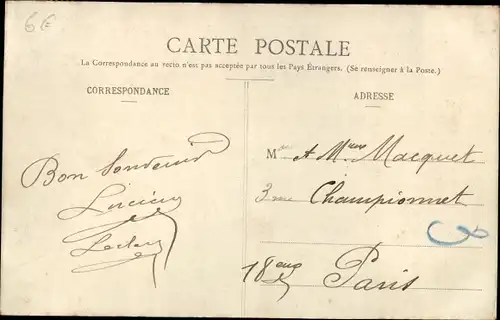 6€
CARTE POSTALE
La Correspondance au recto n'est pas acceptée par tous les Pays Étrangers. (Se renseigner à la Poste.)
CORRESPONDANCE
ADRESSE
Bon Souvenir
Lucien
M et Mme Macquet
Championnet
18eme Paris